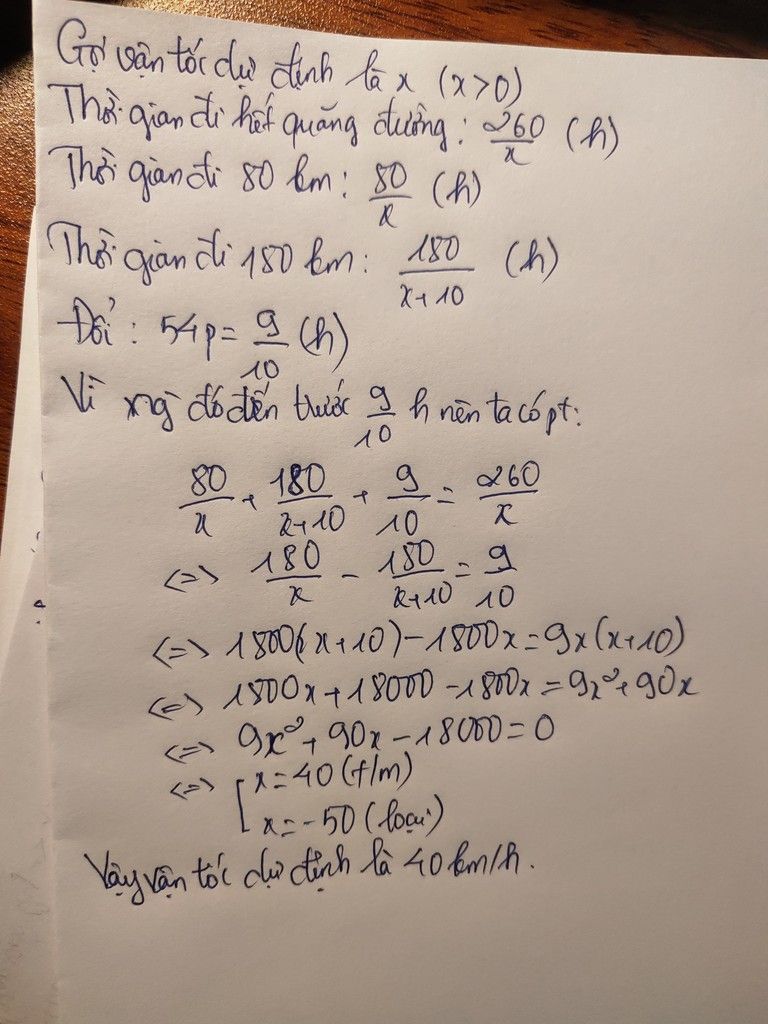 Gọi vận tốc dự định là x (x>0)
Thời gian đi hết quãng đường: 260/x (h)
Thời gian đi 80 km: 80/x (h)
Thời gian đi 180 km: 180/(x+10) (h)
Đổi: 54p = 9/10 (h)
Vì đó đến trước 9/10 h nên ta có pt:
80/x + 180/(x+10) + 9/10 = 260/x
<=> 180/x - 180/(x+10) = 9/10
<=> 1800(x+10) - 1800x = 9x(x+10)
<=> 1800x + 18000 - 1800x = 9x² + 90x
<=> 9x² + 90x - 18000 = 0
<=> [ x = 40 (t/m)
x = -50 (loại)
Vậy vận tốc dự định là 40 km/h.